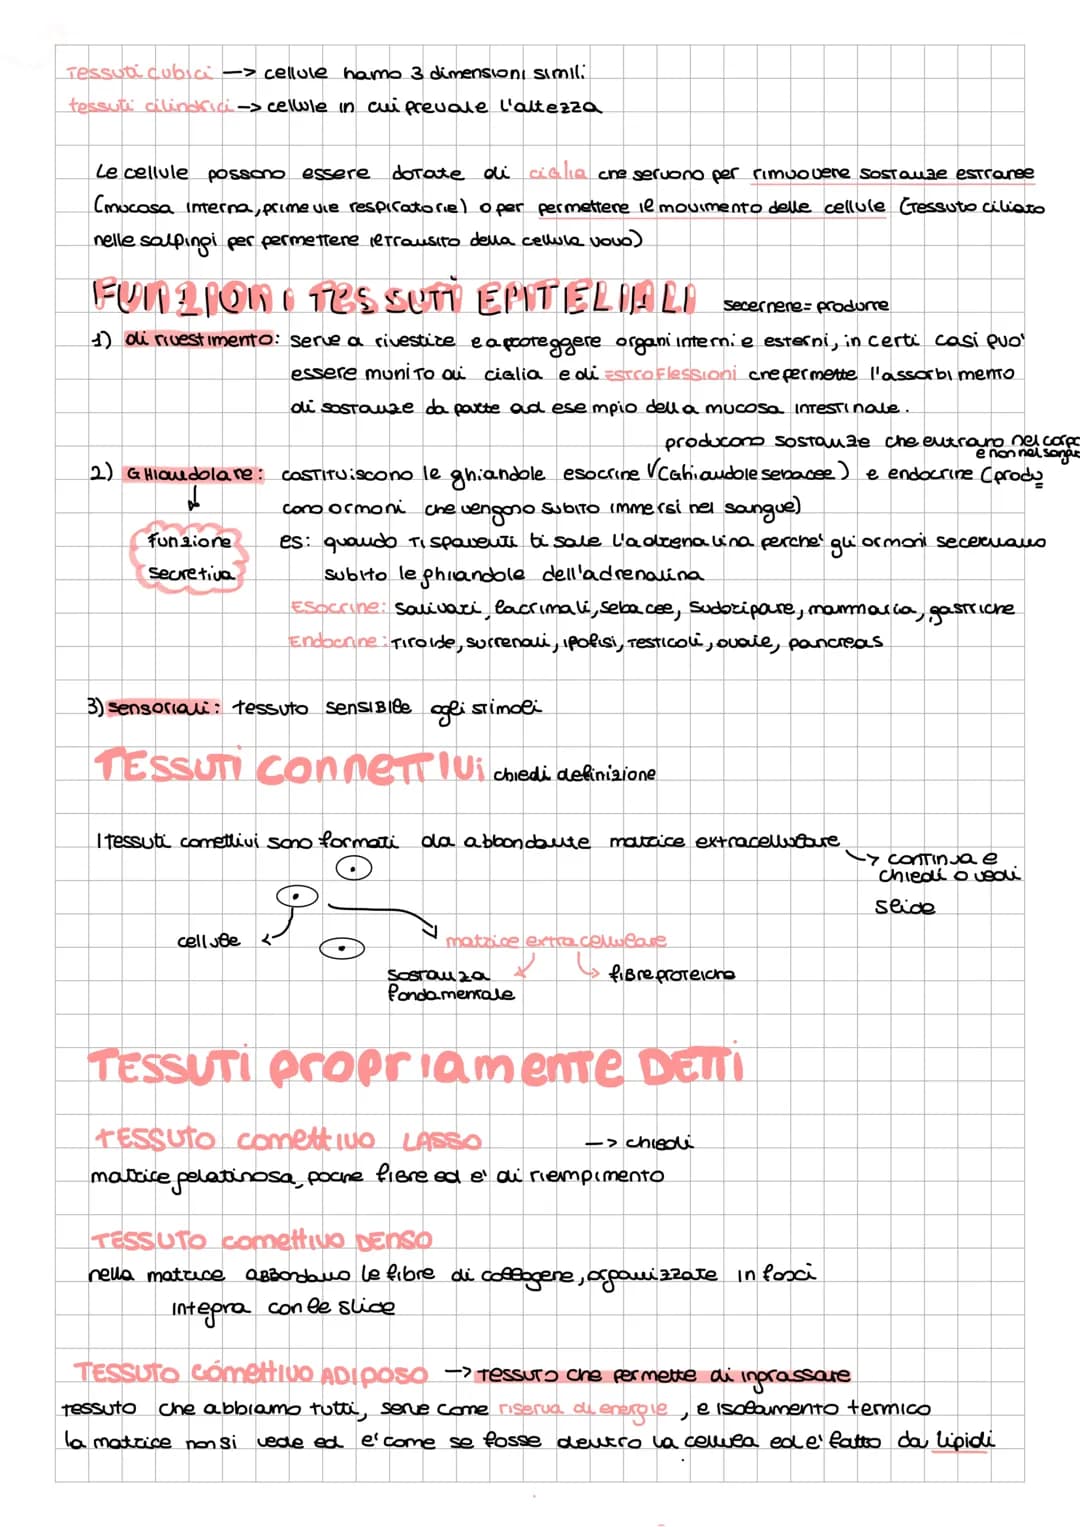 Tessuti cubici —> cellule hanno 3 dimensioni simili
tessuti cilindrici —> cellule in cui prevale l'altezza
Le cellule possono essere dotate di ciglia che servono per rimuovere sostanze estranee
(mucosa interna, prime vie respiratorie) o per permettere il movimento delle cellule (tessuto ciliato
nelle salpingi per permettere il transito della cellula uovo)
FUNZIONI TESSUTI EPITELIALI secernere = produrre
1) di rivestimento: serve a rivestire e a proteggere organi interni e esterni, in certi casi puo'
essere munito di ciglia e di estroflessioni che permette l'assorbimento
di sostanze da parte ad esempio della mucosa intestinale.
producono sostanze che entrano nel corpo
e non nel sangue
2) GHiandolare: costituiscono le ghiandole esocrine √(Ghiandole sebacee) e endocrine (produ
cono ormoni che vengono subito immersi nel sangue)
funzione
secretiva
es: quando ti spaventi ti sale l'adrenalina perche' gli ormoni secernano
subito le ghiandole dell'adrenalina
Esocrine: salivari, lacrimali, sebacee, sudoripare, mammaria, gastriche
Endocrine: Tiroide, surrenali, ipofisi, testicoli, ovaie, pancreas
3) sensoriali: tessuto sensibile agli stimoli
TESSUTI connettivi chiedi definizione
I tessuti connettivi sono formati da abbondante matrice extracellulare
—> continua e
chiedi o vedi
slide
cellule
matrice extracellulare
sostanza
fondamentale
fibre proteiche
TESSUTI propriamente DETTI
TESSUTO connettivo LASSO —> chiedi
matrice gelatinosa, poche fibre ed e' di riempimento
TESSUTO connettivo DENSO
nella matrice abbondano le fibre di collagene, organizzate in fasci
integra con le slide
TESSUTO connettivo ADIPOSO —> tessuto che permette di ingrassare
tessuto che abbiamo tutti, serve come riserva di energie, e isolamento termico
la matrice non si vede ed e' come se fosse dentro la cellula ed e' fatto da lipidi